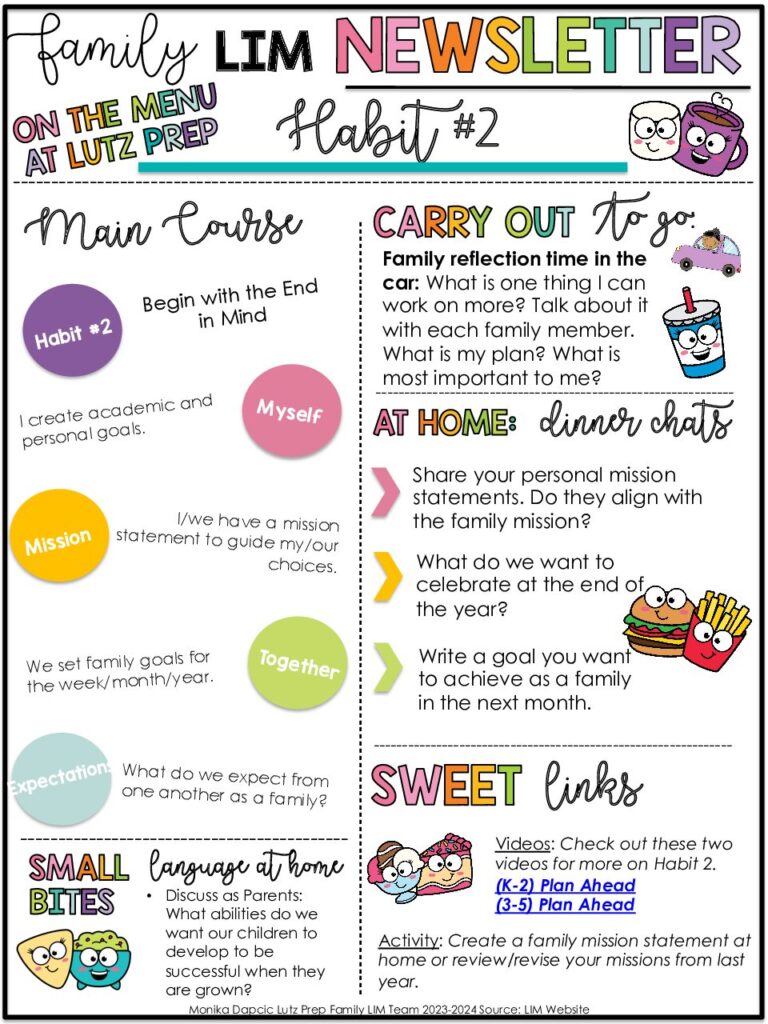 family LIM NEWSLETTER
ON THE MENU
AT LUTZ PREP
Habit #2
Main Course
Habit #2
Begin with the End
in Mind
I create academic and
personal goals.
Myself
Mission
I/we have a mission
statement to guide my/our
choices.
We set family goals for
the week/month/year.
Together
Expectations
What do we expect from
one another as a family?
SMALL
BITES
language at home
• Discuss as Parents:
What abilities do we
want our children to
develop to be
successful when they
are grown?
CARRY OUT to go:
Family reflection time in the
car: What is one thing I can
work on more? Talk about it
with each family member.
What is my plan? What is
most important to me?
AT HOME: dinner chats
Share your personal mission
statements. Do they align with
the family mission?
What do we want to
celebrate at the end of
the year?
Write a goal you want
to achieve as a family
in the next month.
SWEET links
Videos: Check out these two
videos for more on Habit 2.
(K-2) Plan Ahead
(3-5) Plan Ahead
Activity: Create a family mission statement at
home or review/revise your missions from last
year.
Monika Dapcic Lutz Prep Family LIM Team 2023-2024 Source: LIM Website